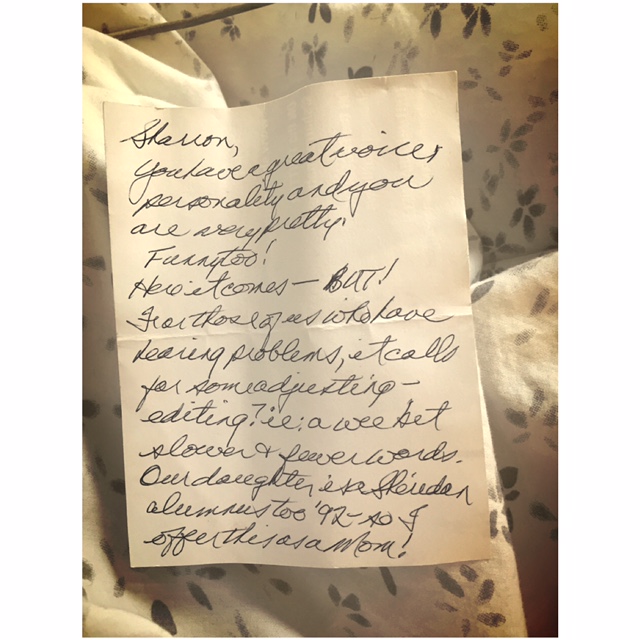 Sharron,
You have a great voice &
personality and you
are very pretty.
Funny too!
Here it comes — BUT!
For those of us who have
hearing problems, it calls
for some adjusting -
editing? ie: a wee bet
slower & fewer words.
Our daughter is a Sheridan
alumnus too '92 - so I
offer this as a Mom!